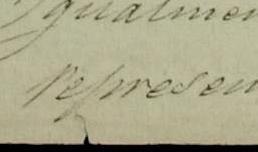 Igualmen
represen